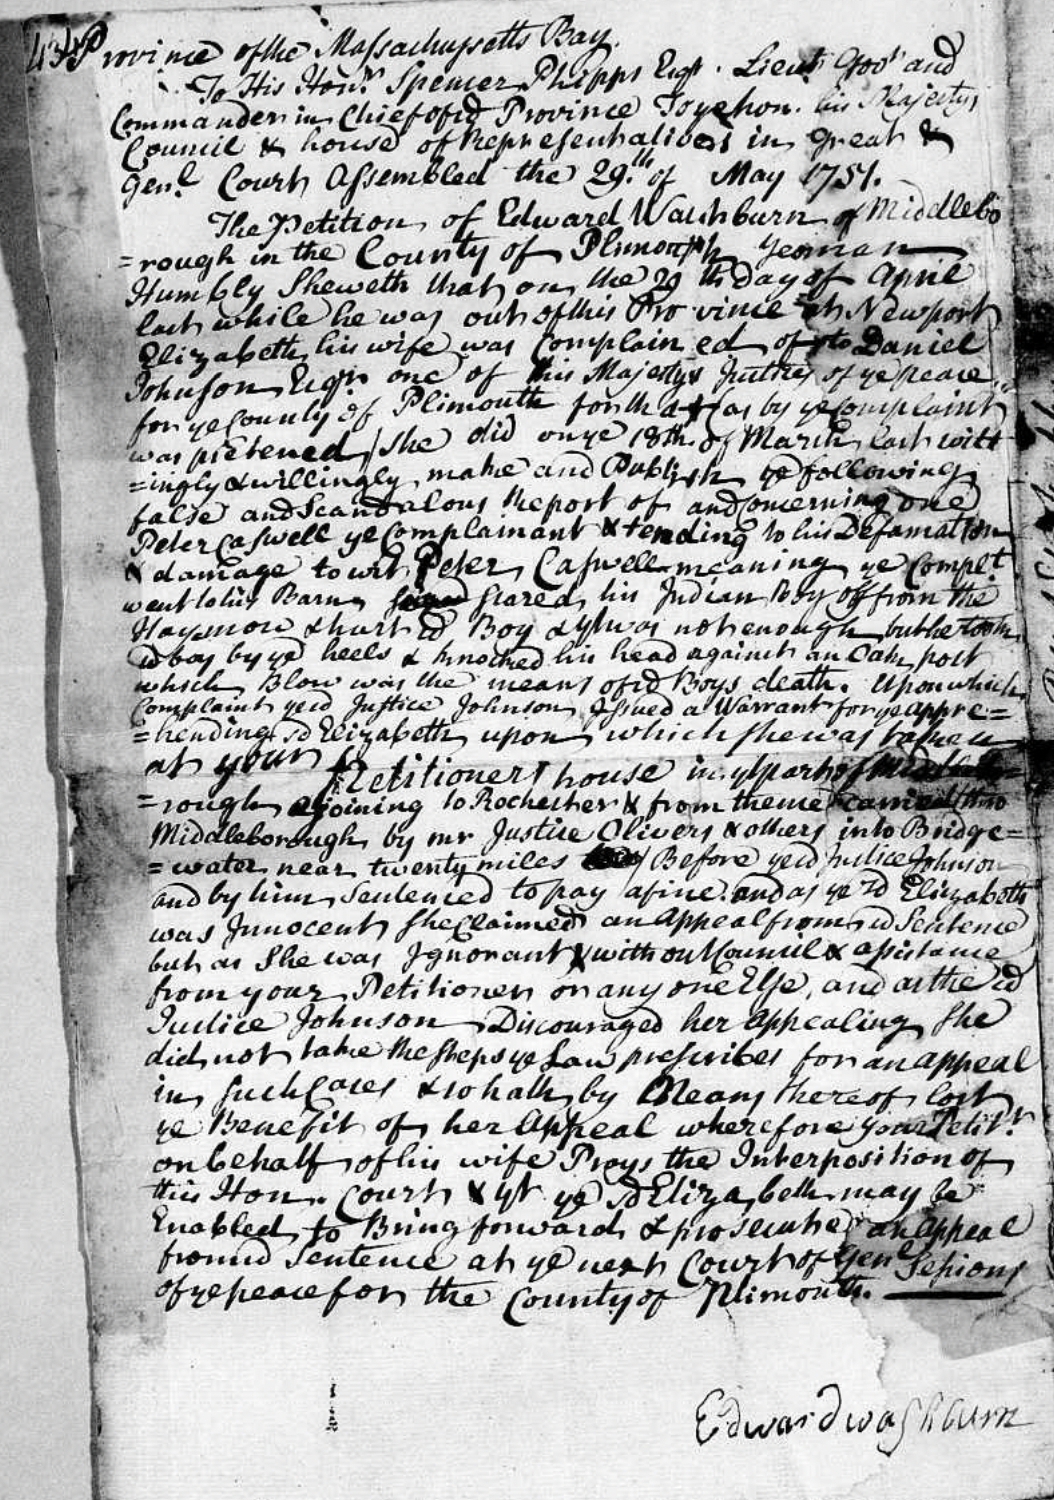 434
Province of the Massachusetts Bay.
To His Honr. Spencer Phipps Esqr. Lieut Govr and
Commander in Chief of sd Province To ye hon. his Majestys
Council & house of Representatives in Great &
Genll. Court Assembled the 29.th of May 1751.
The Petition of Edward Washburn of Middlebo
=rough in the County of Plimouth Yeoman
Humbly Sheweth that on the 29th Day of April
last while he was out of this Province at Newport
Elizabeth his wife was Complained of to Daniel
Johnson Esqr. one of his Majestys Justices of ye peace
for ye County of Plimouth for that (as by ye Complaint
was pretened) She did on ye 18th. of March last witt
=ingly & willingly make and Publish ye following
false and Scandalous Report of and Concerning one
Peter Caswell ye Complainant & tending to his Defamation
& damage to wit Peter Caswell meaning ye Complt
went to his Barn Scared his Indian Boy off from the
Haymow & hurt sd Boy & yt was not enough but he took
sd boy by ye heels & knocked his head against an Oak post
which Blow was the means of sd Boys death. Upon which
Complaint ye sd Justice Johnson Issued a Warrant for ye appre=
=hending sd Elizabeth upon which she was taken
at your Petitioners house in yt part of Middlebo=
=rough ajoining to Rochester & from thence carried thro
Middleborough by mr Justice Olivers & others into Bridge=
=water near twenty miles Before ye sd Justice Johnson
and by him Sentenced to pay a fine. and as ye sd Elizabeth
was Innocent She Claimed an Appeal from sd Sentence
but as She was Ignorant & without Council & asistance
from your Petitioner or any one Else, and as the sd
Justice Johnson Discouraged her Appealing She
did not take the steps ye Law prescribes for an appeal
in such Cases & so hath by Means thereof lost
ye Benefit of her Appeal wherefore your Petitr.
on behalf of his wife Prays the Interposition of
this Hon. Court & yt ye sd Elizabeth may be
Enabled to Bring forward & prosecute an Appeal
from sd Sentence at ye next Court of Genll Sessions
of ye peace for the County of Plimouth.
Edward washburn